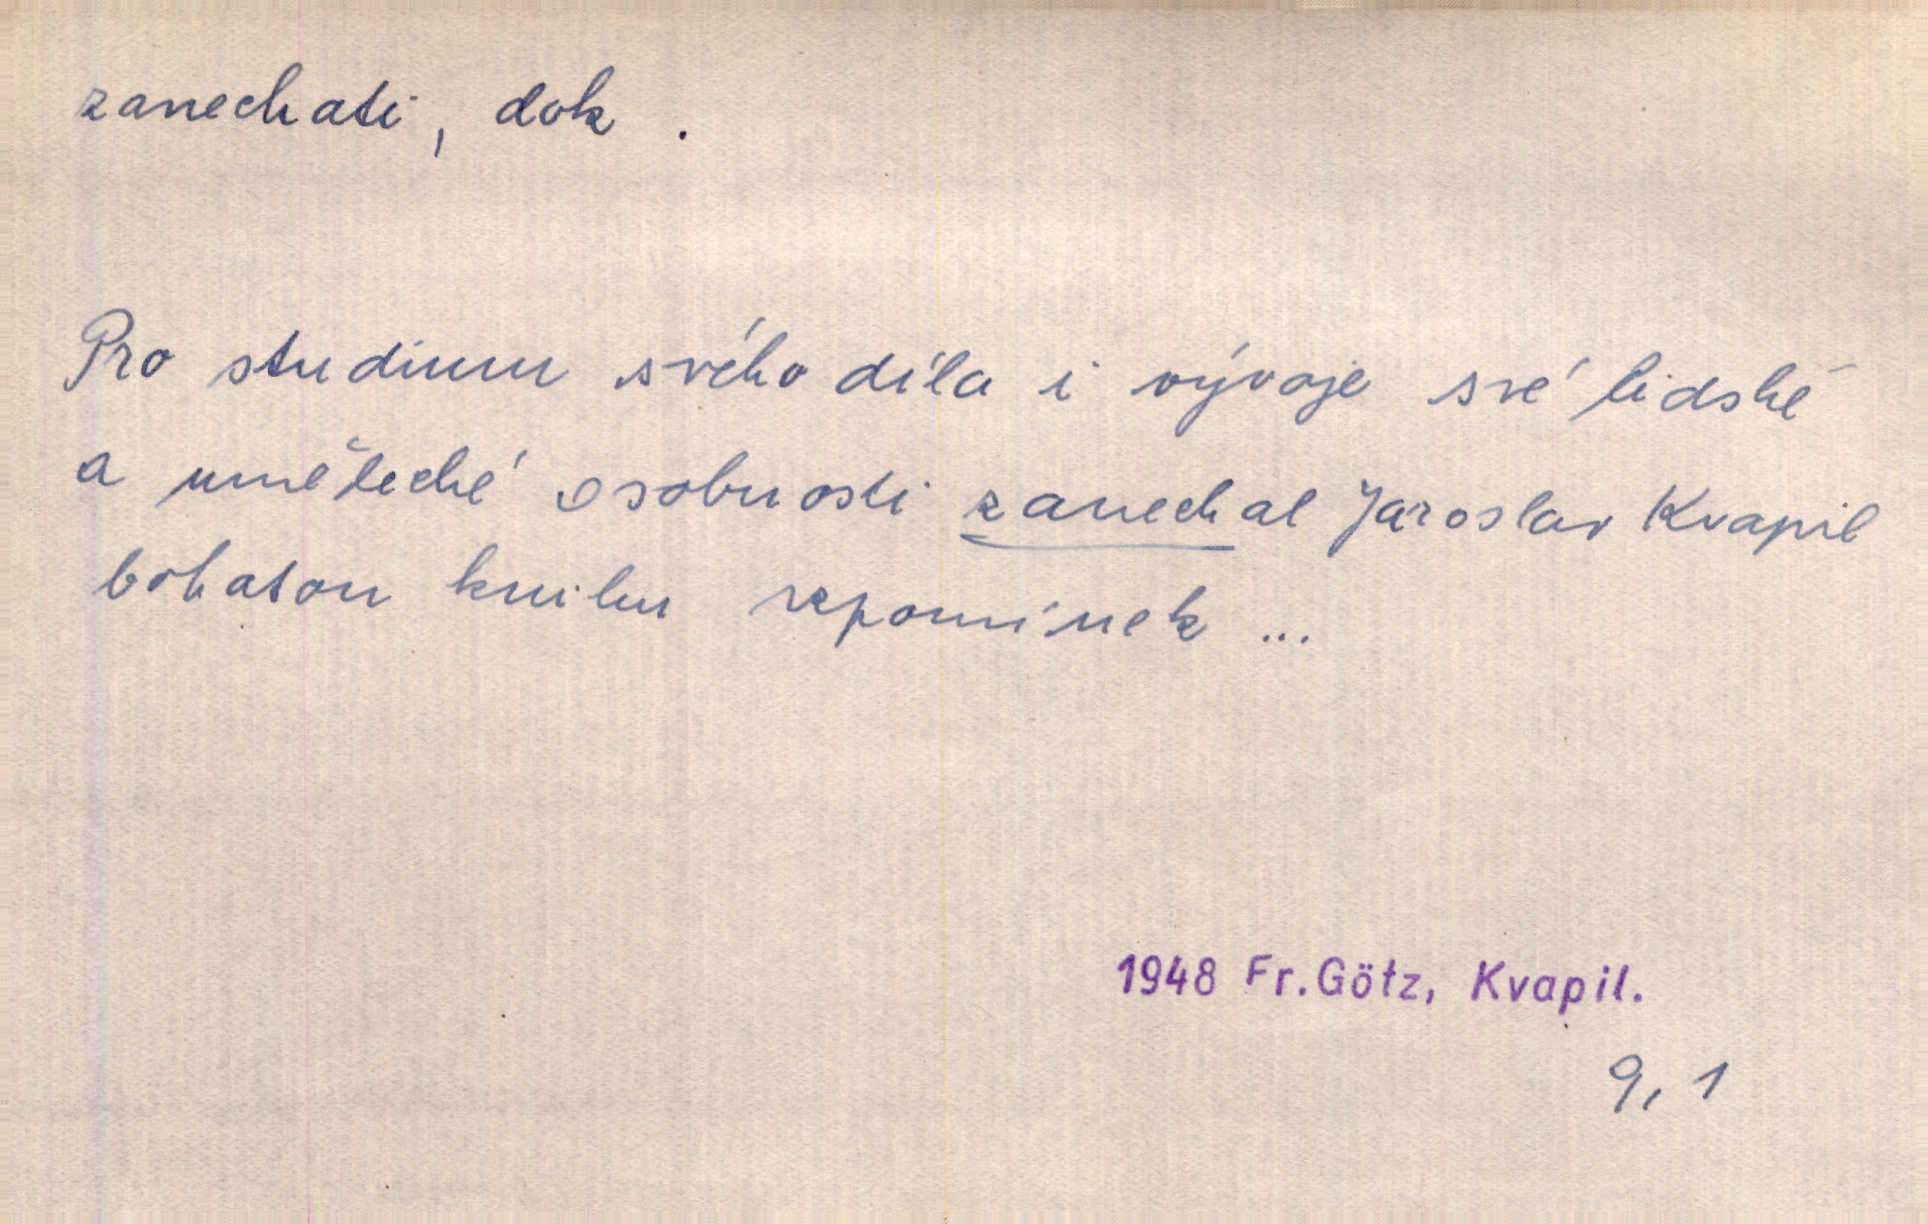 zanechati, dok.
Pro studium svého díla i vývoje své lidské
a umělecké osobnosti zanechal Jaroslav Kvapil
bohatou knihu vzpomínek ...
1948 Fr. Götz, Kvapil.
9, 1